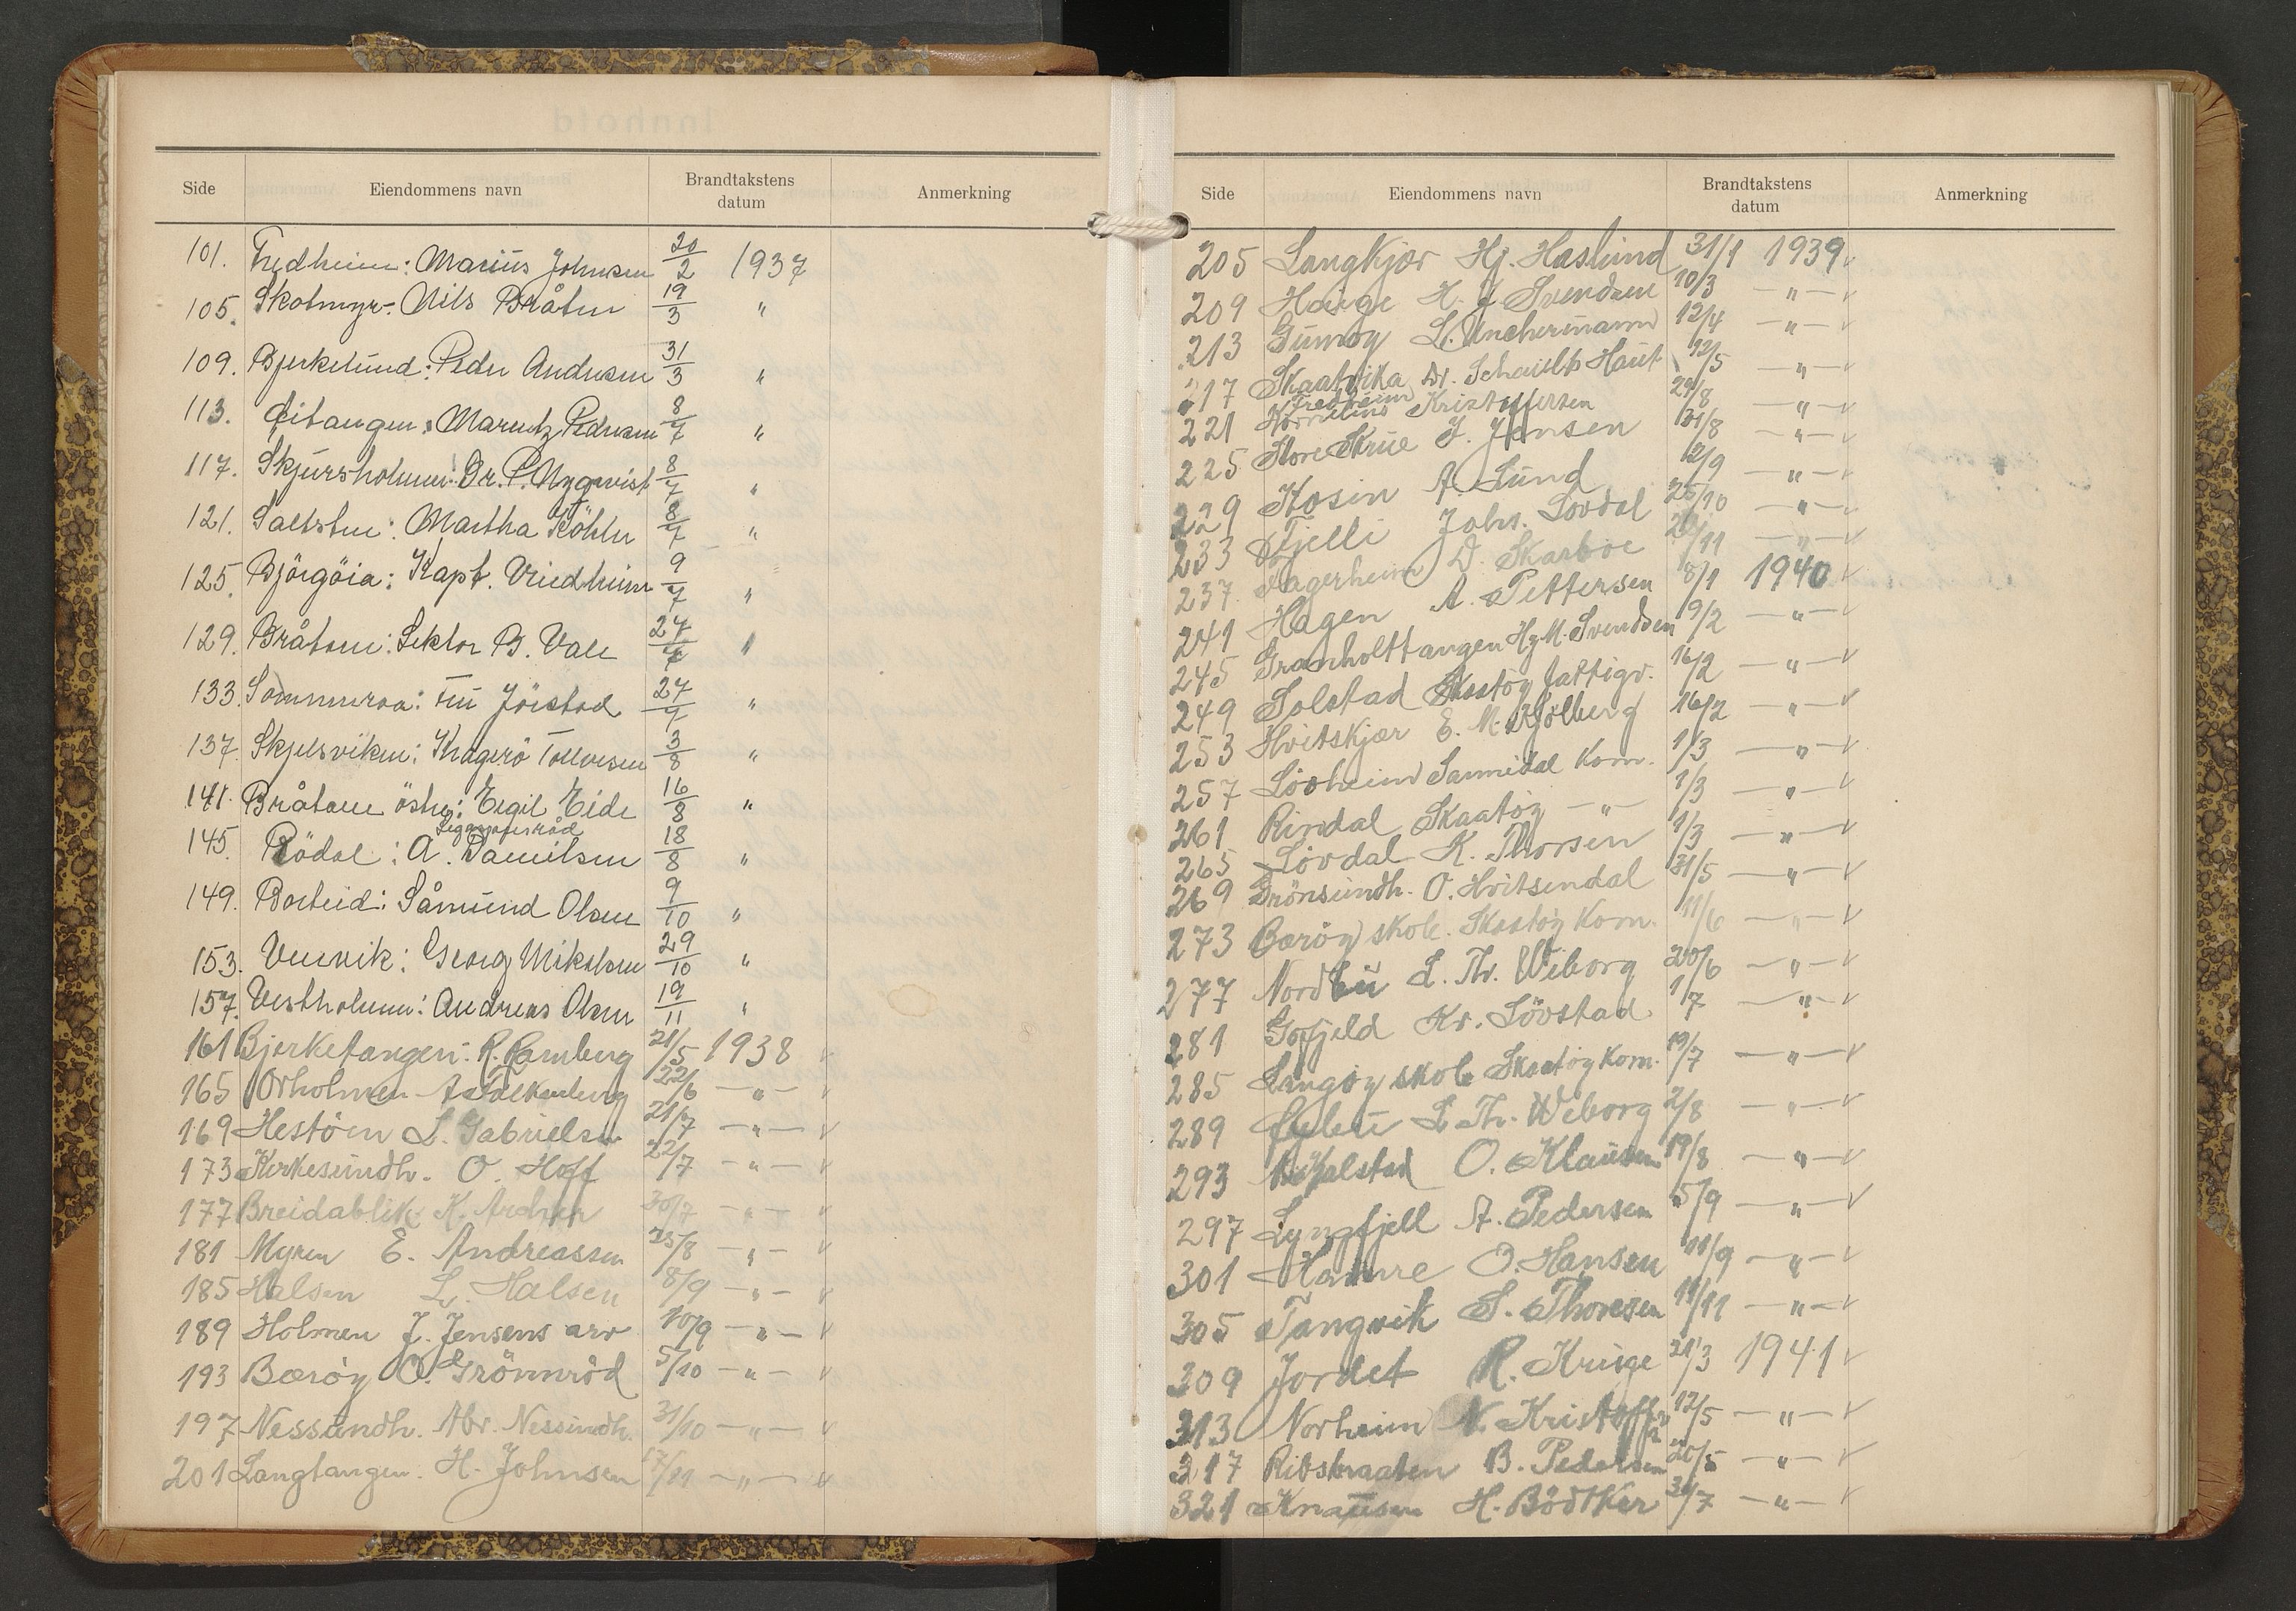 Side Eiendommens navn Brandtakstens datum Anmerkning
101. Fredheim: Marius Johnsen 20/2 1937
105. Skotmyr: Nils Bråten 19/3 "
109. Bjerkelund: Peder Andersen 31/3 "
113. Eitangen: Marentz Pedersen 8/7 "
117. Skjærsholmen: Dr. P. Nyqvist 8/7 "
121. Saltsten: Martha Köhler 8/7 "
125. Bjørgøia: Kapt. Vriedheim 9/7 "
129. Bråtane: Lektor B. Vale 27/7 "
133. Sommerroa: Jørstad 27/7 "
137. Skjelsviken: Kragerø Tollvesen 3/8 "
141. Bråtane østre: Eigil Eide 16/8 "
145. Rödal: A. Danielsen 18/8 "
149. Borteid: Såmund Olsen 9/10 "
153. Venvik: Georg Mikalsen 29/10 "
157. Vestholmen: Andreas Olsen 19/11 "
161 Bjerketangen: R. Ramberg 21/5 1938
165 Orholmen A. Falkenberg 22/6 — " —
169 Hestöen L. Gabrielsen 21/7 — " — v
173 Kirkesundh. O. Hoff 22/7 — " — v
177 Breidablik K. 30/7 — " — v
181 Myren E. Andreassen 25/8 — " — v
185 Halsen L. Halsen 8/9 — " — v
189 Holmen J. Jensens arv 10/9 — " — v
193 Bærøy O. Grönnröd 5/10 — " — v
197 Nessundh. Abr. Nessundh. 31/10 — " — v
201 Langtangen. H. Johnsen 17/11 — " — v
Side Eiendommens navn Brandtakstens datum Anmerkning
205 Langkjær Hj. Haslund 31/1 1939 v
209 Hauge H. J. Svendsen 10/3 — " — v
213 Gumøy L. Unchermann 12/4 — " — v
217 Skaatvika Dr. 12/5 — " — v
221 Fredheim Kornelius Kristoffersen 29/8 — " — v
225 Store Kirke J. Jensen 31/8 — " — v
229 Kosin A. Lund 12/9 — " — v
233 Fjelli Johs. Lovdal 25/10 — " — v
237. Fagerheim D. Skarboe /11 — " — v
241 Hagen A. Pettersen 8/1 1940 v
245 Granholttangen Hj. M. Svendsen 9/2 — " — v
249 Solstad Skaatöy fattigv. 16/2 — " — v
253 Hvitskjær E. M. Kjölberg 16/2 — " — v
257 Lövheim Sannidal Kom. 1/3 — " — v
261 Rindal Skaatöy — " — 1/3 — " — v
265 Lövdal K. Thorsen 1/3 — " — v
269 Grönsundh. O. Hvitsendal 31/5 — " — v
273 Bærøy skole. Skaatöy Kom. 11/6 — " — v
277 Nordbu L. Th. Wiborg 20/6 — " — v
281 Gofjeld Kr. Lövstad 1/7 — " — v
285 Langöy skole Skaatöy Kom. 19/7 — " — v
289 L. Th. Wiborg 2/8 — " — v
293 O. Klausen 19/8 — " — v
297 Lyngfjell A. Pedersen 5/9 — " — v
301 Havnre O. Hansen 11/9 — " — v
305 Tangvik S. Thoresen 11/11 — " — v
309 Jordet R. Kruge 21/3 1941 v
313 Norheim N. Kristoffer 12/5 — " — v
317 Ribskraaten B. Pedersen 20/5 — " — v
321 Knausen H. Bödtker 30/7 — " — v